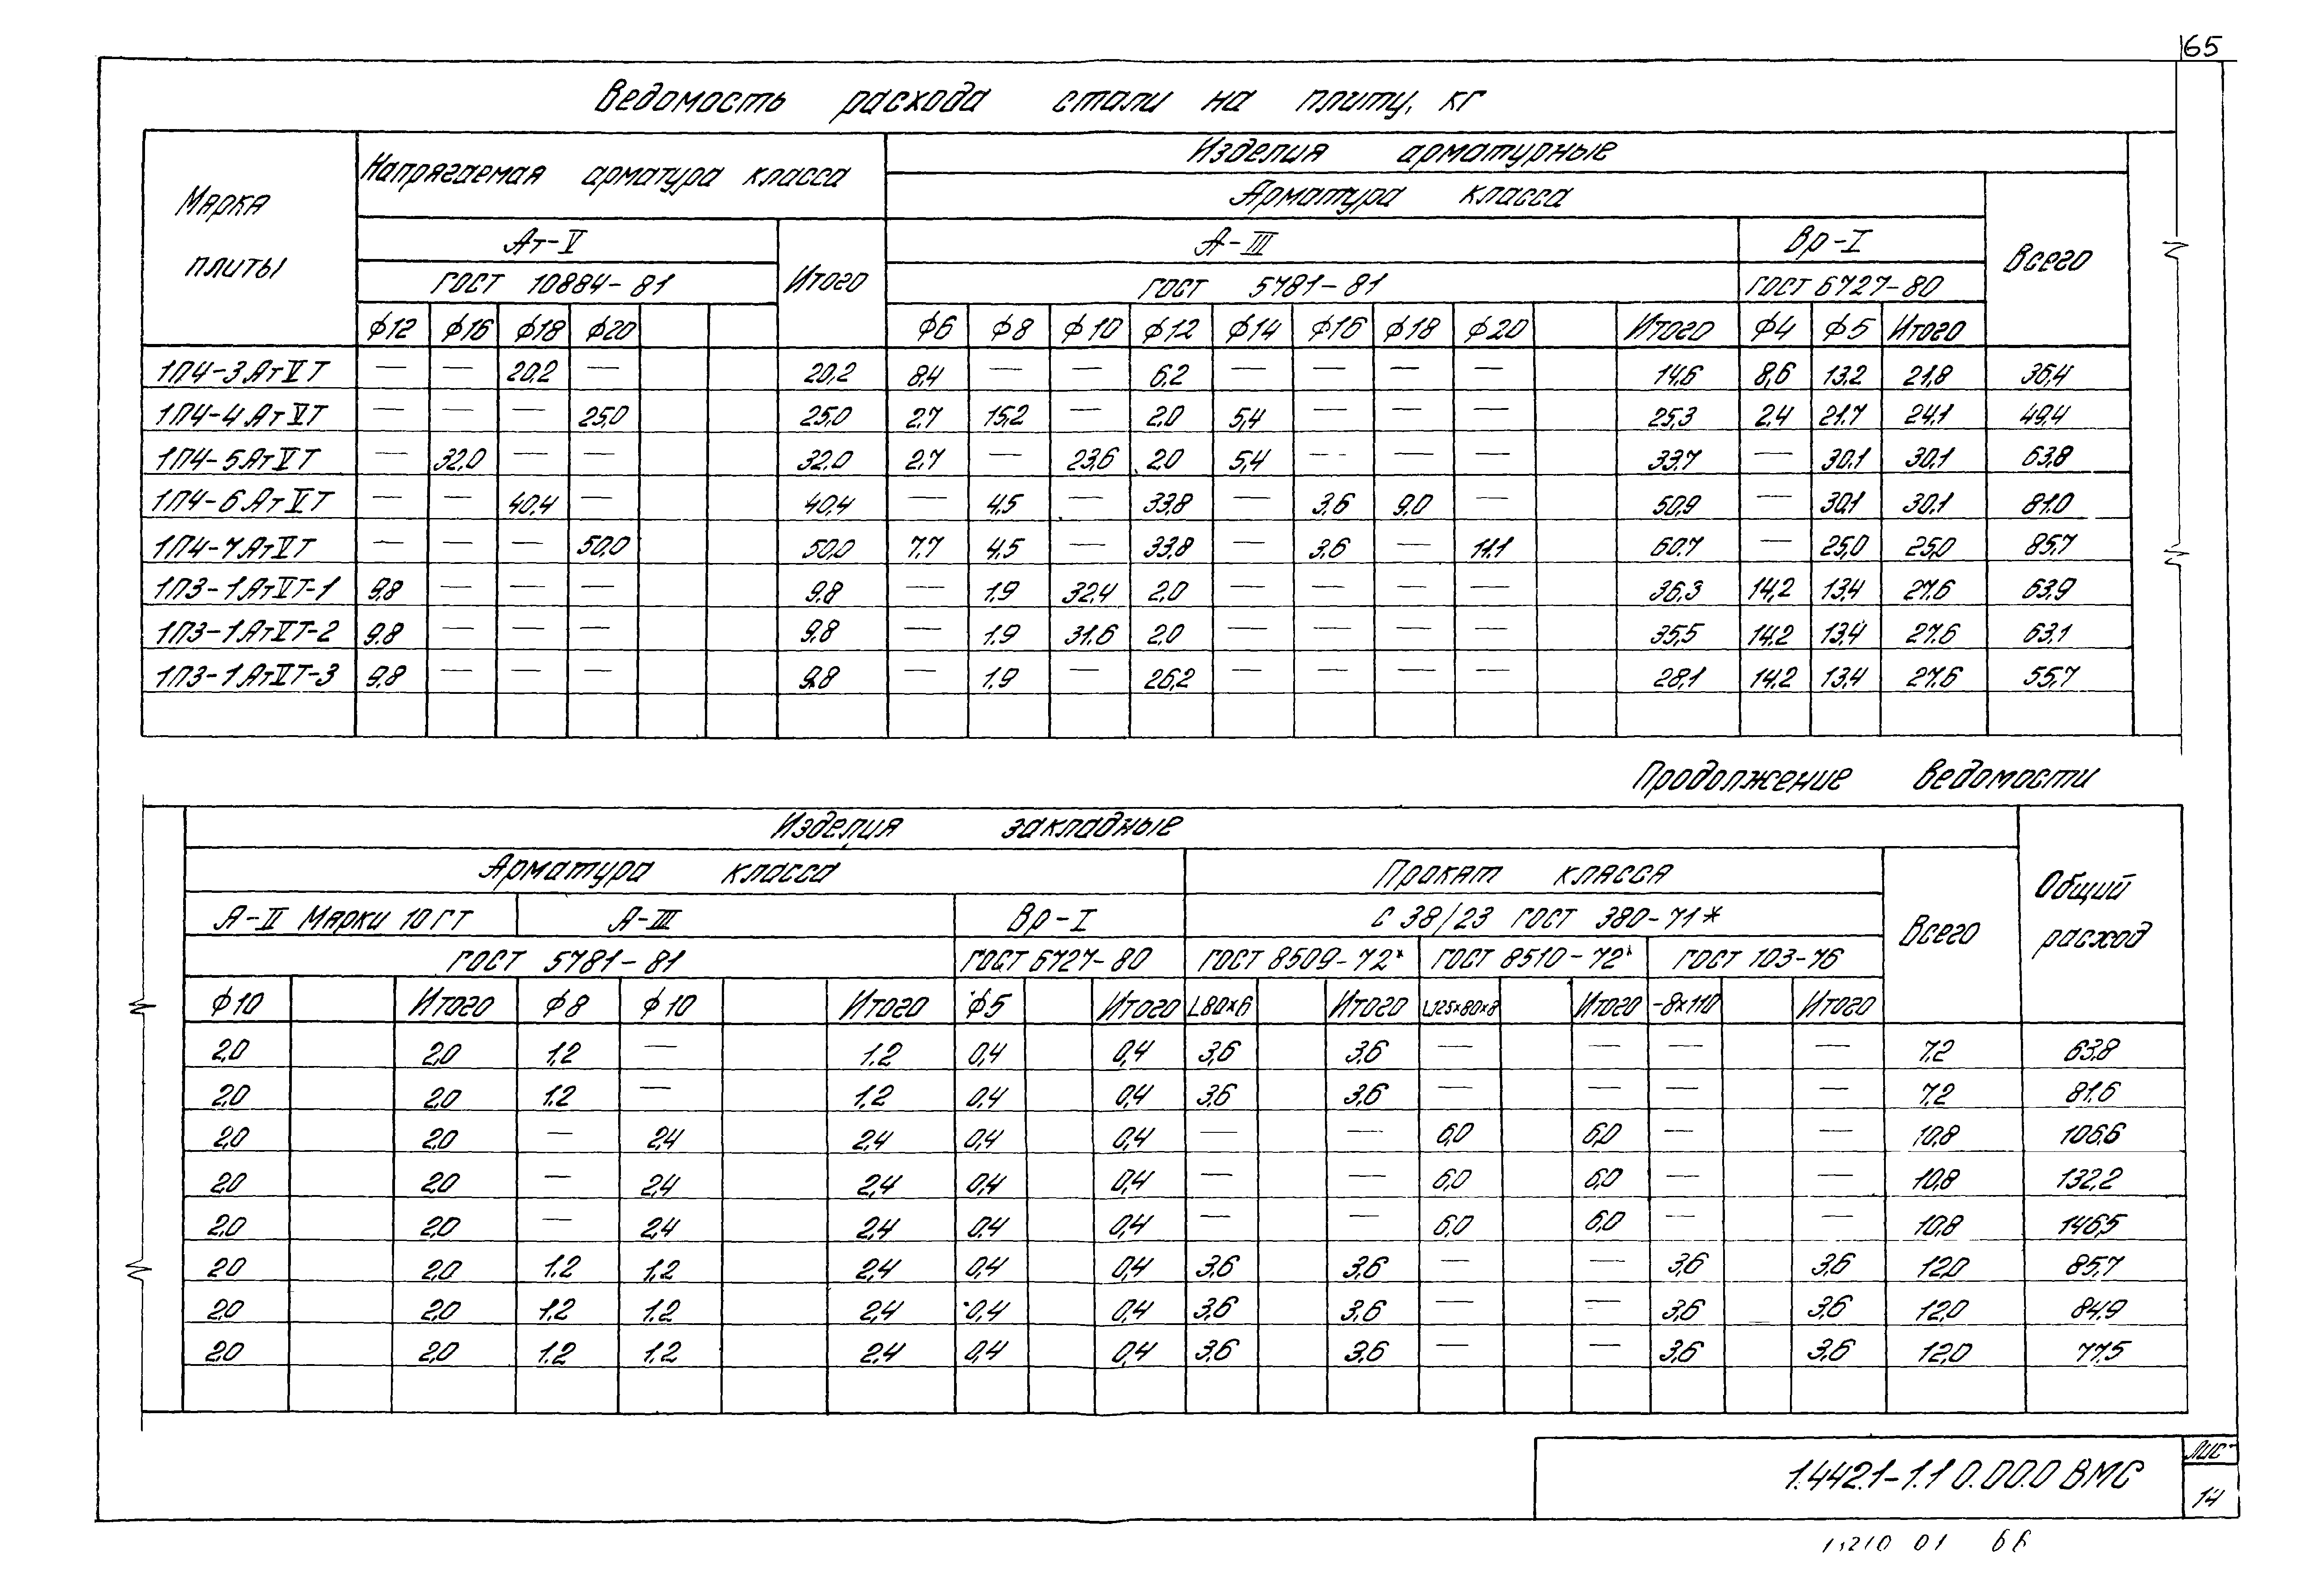 65
Ведомость расхода стали на плиту, кг
Марка плиты
Напрягаемая арматура класса
Изделия арматурные
Арматура класса
Всего
Ат-V
Итого
А-III
Вр-I
ГОСТ 10884-81
ГОСТ 5781-81
ГОСТ 6727-80
ф12 ф16 ф18 ф20 ф6 ф8 ф10 ф12 ф14 ф16 ф18 ф20 Итого ф4 ф5 Итого
1П4-3АтVТ — — 20,2 — 20,2 8,4 — — 6,2 — — — — 14,6 8,6 13,2 21,8 36,4
1П4-4АтVТ — — — 25,0 25,0 2,7 15,2 — 2,0 5,4 — — — 25,3 2,4 21,7 24,1 49,4
1П4-5АтVТ — 32,0 — — 32,0 2,7 — 23,6 2,0 5,4 — — — 33,7 — 30,1 30,1 63,8
1П4-6АтVТ — — 40,4 — 40,4 — 4,5 — 33,8 — 3,6 9,0 — 50,9 — 30,1 30,1 81,0
1П4-7АтVТ — — — 50,0 50,0 7,7 4,5 — 33,8 — 3,6 — 11,1 60,7 — 25,0 25,0 85,7
1П3-1АтVТ-1 9,8 — — — 9,8 — 1,9 32,4 2,0 — — — — 36,3 14,2 13,4 27,6 63,9
1П3-1АтVТ-2 9,8 — — — 9,8 — 1,9 31,6 2,0 — — — — 35,5 14,2 13,4 27,6 63,1
1П3-1АтVТ-3 9,8 — — — 9,8 — 1,9 — 26,2 — — — — 28,1 14,2 13,4 27,6 55,7
Продолжение ведомости
Изделия закладные
Общий расход
Арматура класса
Прокат класса
Всего
А-II Марки 10ГТ
А-III
Вр-I
С 38/23 ГОСТ 380-71*
ГОСТ 5781-81
ГОСТ 6727-80
ГОСТ 8509-72*
ГОСТ 8510-72*
ГОСТ 103-76
ф10 Итого ф8 ф10 Итого ф5 Итого L80×6 Итого L125×80×8 Итого -8×110 Итого
2,0 2,0 1,2 — 1,2 0,4 0,4 3,6 3,6 — — — — 7,2 63,8
2,0 2,0 1,2 — 1,2 0,4 0,4 3,6 3,6 — — — — 7,2 81,6
2,0 2,0 — 2,4 2,4 0,4 0,4 — — 6,0 6,0 — — 10,8 106,6
2,0 2,0 — 2,4 2,4 0,4 0,4 — — 6,0 6,0 — — 10,8 132,2
2,0 2,0 — 2,4 2,4 0,4 0,4 — — 6,0 6,0 — — 10,8 146,5
2,0 2,0 1,2 1,2 2,4 0,4 0,4 3,6 3,6 — — 3,6 3,6 12,0 85,7
2,0 2,0 1,2 1,2 2,4 0,4 0,4 3,6 3,6 — — 3,6 3,6 12,0 84,9
2,0 2,0 1,2 1,2 2,4 0,4 0,4 3,6 3,6 — — 3,6 3,6 12,0 77,5
1.442.1-1.1 0.00.0 ВМС
Лис
14
01 66